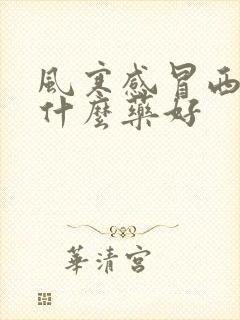 風寒感冒西
什麼藥好
華清宮